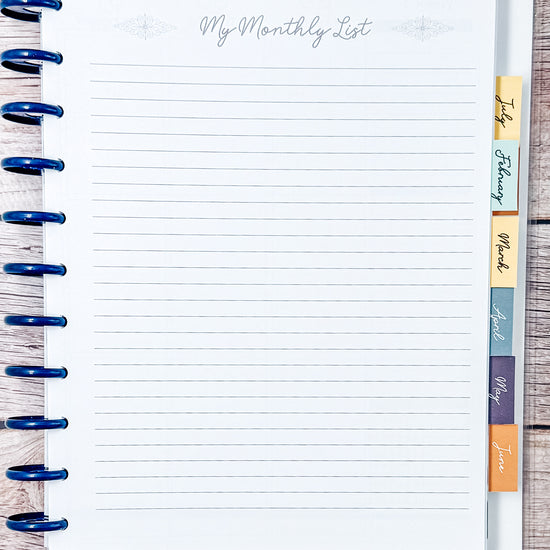 My Monthly List
July
February
March
April
May
June